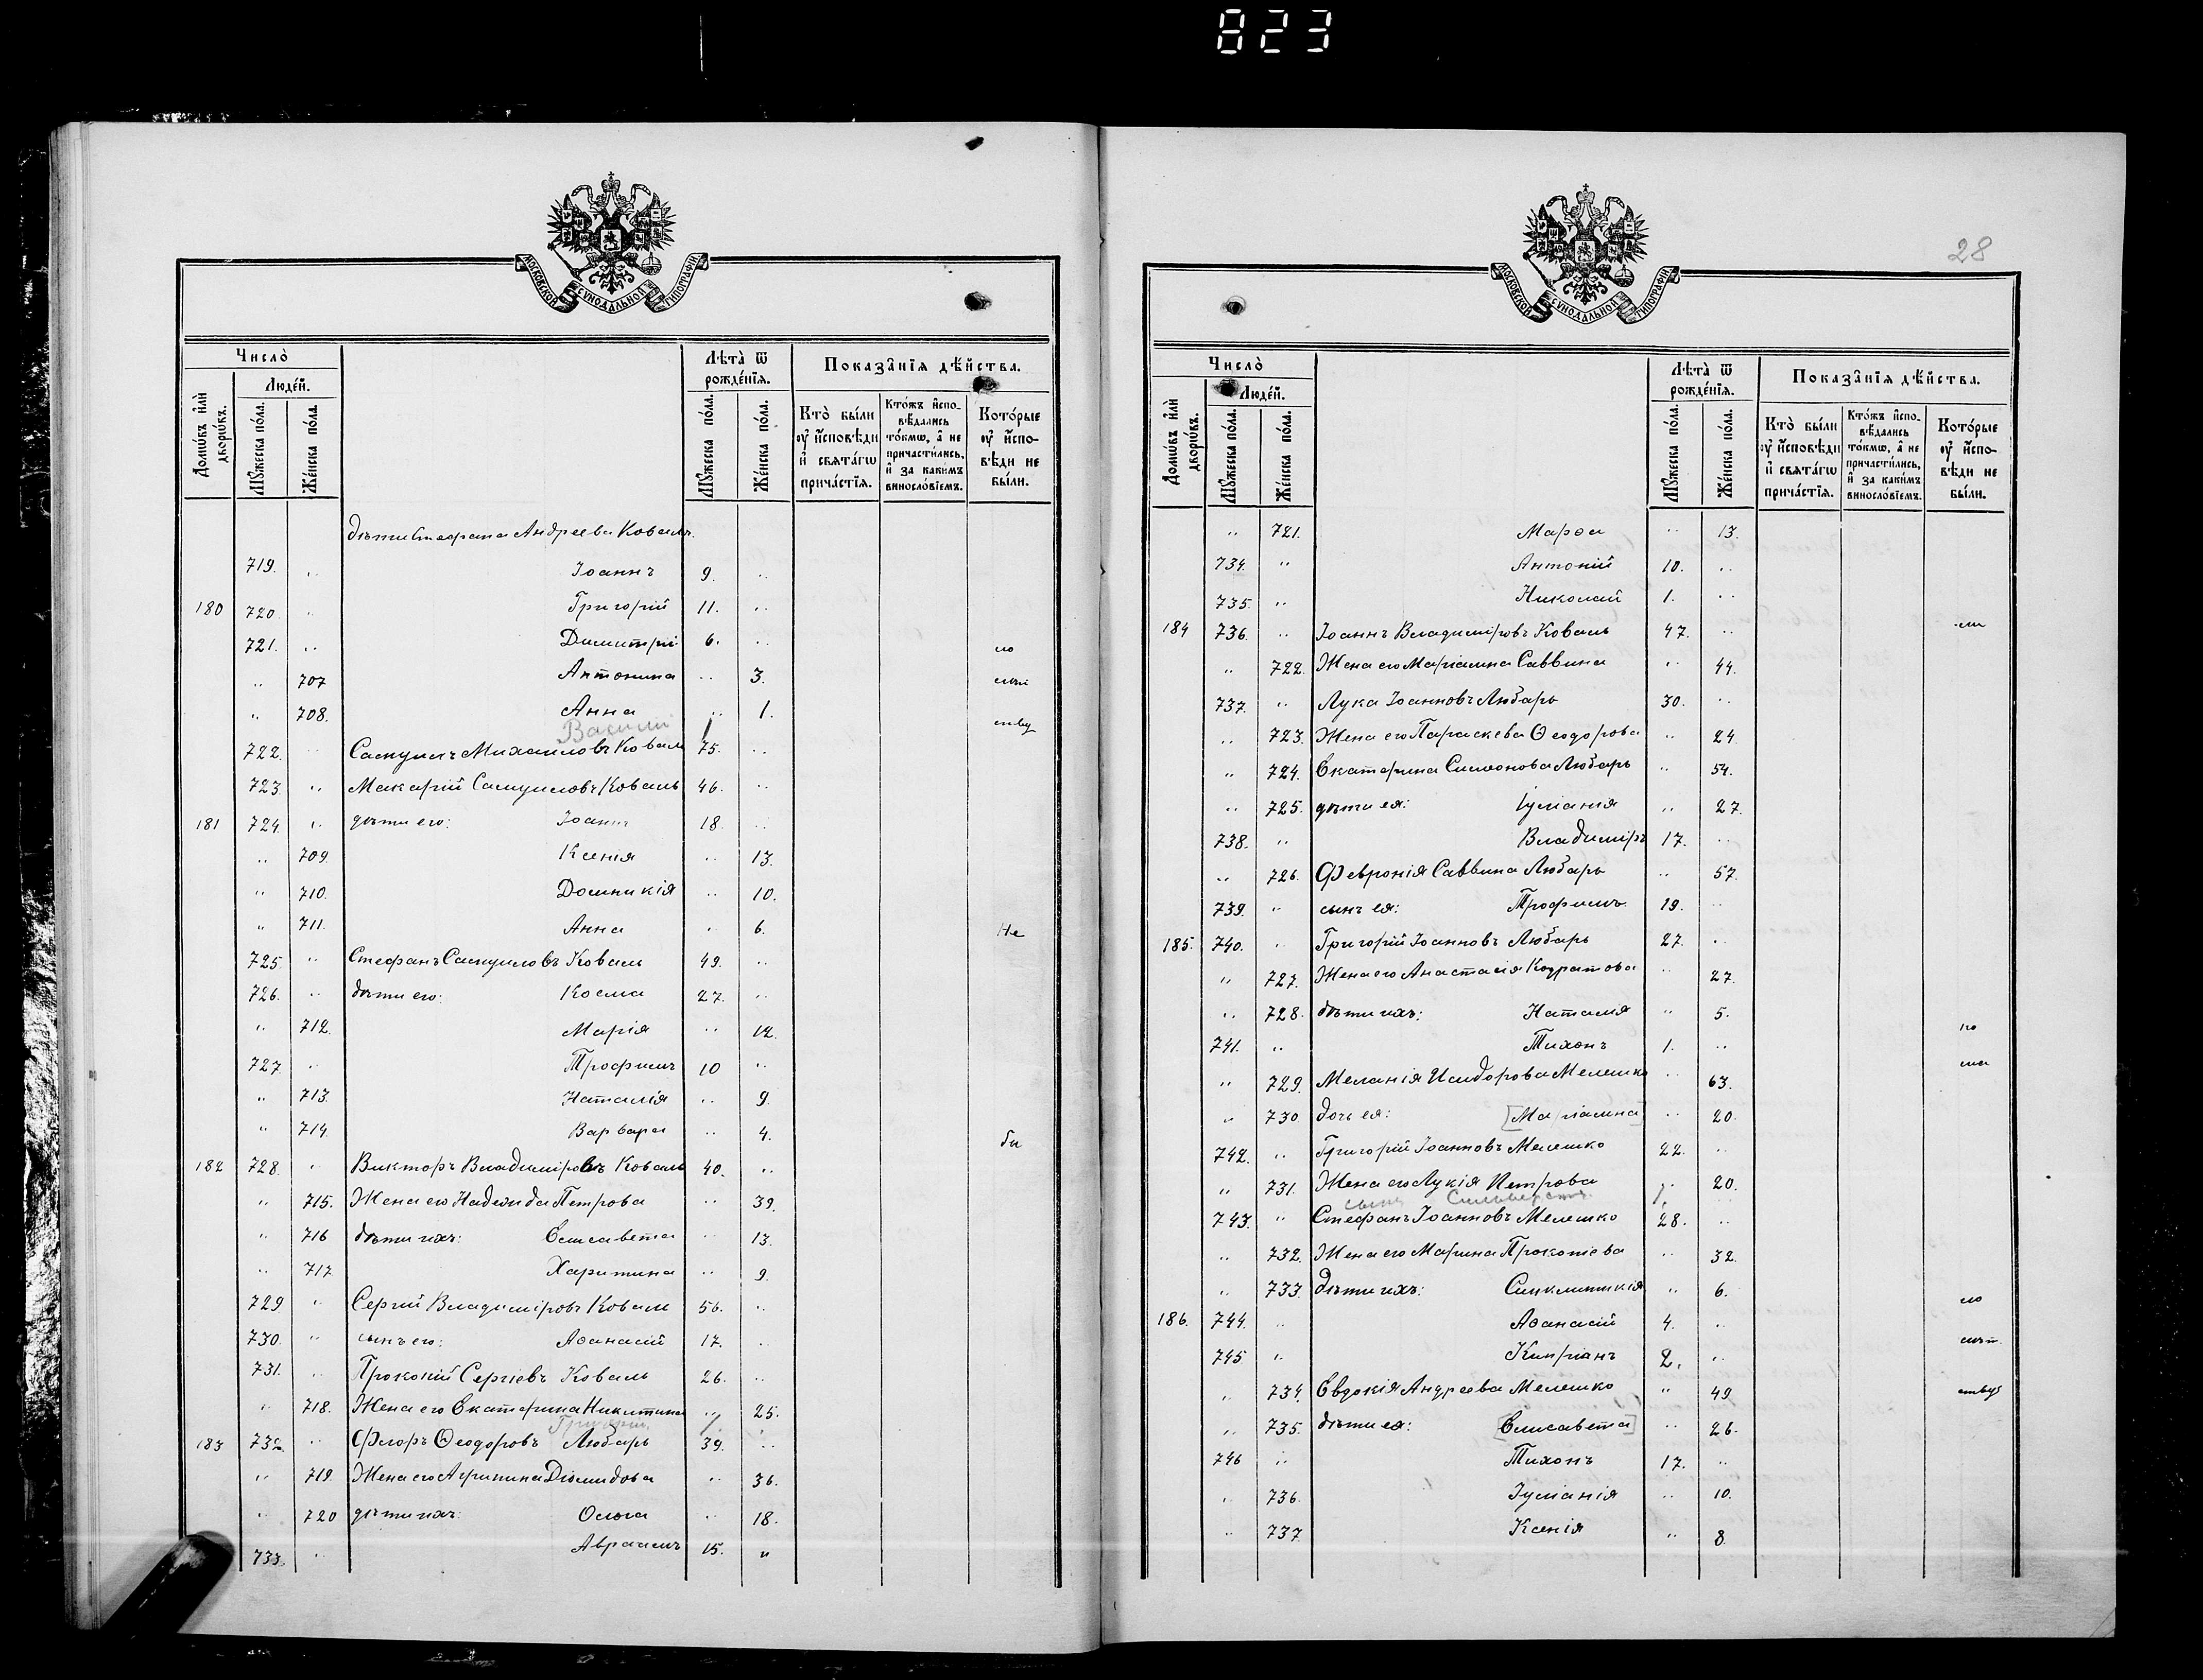 823
МОСКОВСКОЙ СѴНОДАЛЬНОЙ ТИПОГРАФІИ
Число̀
Людéй.
Домóвъ и҆лѝ дворóвъ.
Мꙋ́жеска по́ла.
Же́нска по́ла.
Лѣта̀ ѿ рождéнїѧ.
Мꙋ́жеска по́ла.
Же́нска по́ла.
Показа̑нїѧ дѣ́йства.
Кто̀ бы́ли ᲂу҆ и҆сповѣди и҆ свѧта́гѡ прича́стїѧ.
Кто́жъ и҆спо-вѣдались то́кмѡ, а҆ не причасти́лись, и҆ за каки́мъ винослóвїемъ.
Кото́рые ᲂу҆ и҆спо-вѣди не бы́ли.
дѣти Стефана Андреева Коваль.
719. " Іоаннъ 9. "
180 720. " Григорій 11. "
721. " Димитрій 6. "
ло
" 707 Антонина " 3.
" 708. Анна " 1.
ству
Василій 1
722. " Самуилъ Михаиловъ Коваль 75. "
723. " Макарій Самуиловъ Коваль 46. "
181 724. " дѣти его: Іоаннъ 18. "
" 709. Ксенія " 13.
" 710. Домникія " 10.
" 711. Анна " 6.
Не
725. " Стефанъ Самуиловъ Коваль 49. "
726. " дѣти его: Косма 27. "
" 712. Марія " 12.
727. " Трофимъ 10 "
" 713. Наталія " 9.
" 714. Варвара " 4.
бы
182 728. " Викторъ Владиміровъ Коваль 40. "
" 715. Жена его Надежда Петрова " 39.
" 716 дѣти ихъ: Елисавета " 13.
" 717 Харитина " 9.
729 " Сергий Владиміровъ Коваль 56. "
730. " сынъ его: Аѳанасій 17. "
731. " Прокопій Сергіевъ Коваль 26. "
" 718. Жена его Екатерина Никитина " 25.
Григорій 1
183 732. " Флоръ Ѳеодоровъ Любарь 39. "
" 719. Жена его Агрипина Діомидова " 36.
" 720 дѣти ихъ: " 18.
733. " Авраамъ 15. "
28
МОСКОВСКОЙ СѴНОДАЛЬНОЙ ТИПОГРАФІИ
Число̀
Людéй.
Домóвъ и҆лѝ дворóвъ.
Мꙋ́жеска по́ла.
Же́нска по́ла.
Лѣта̀ ѿ рождéнїѧ.
Мꙋ́жеска по́ла.
Же́нска по́ла.
Показа̑нїѧ дѣ́йства.
Кто̀ бы́ли ᲂу҆ и҆сповѣди и҆ свѧта́гѡ прича́стїѧ.
Кто́жъ и҆спо-вѣдались то́кмѡ, а҆ не причасти́лись, и҆ за каки́мъ винослóвїемъ.
Кото́рые ᲂу҆ и҆спо-вѣди не бы́ли.
" 721. Марѳа " 13.
734. " Антоній 10. "
735. " Николай 1. "
184 736. " Іоаннъ Владиміровъ Коваль 47. "
ли
" 722. Жена его Маріамна Саввина " 44.
737. " Лука Іоанновъ Любарь 30. "
" 723. Жена его Параскева Ѳеодорова " 24.
" 724. Екатерина Симеонова Любарь " 54.
" 725. дѣти ея: Іуліанія " 27.
738. " Владиміръ 17. "
" 726. Февронія Саввина Любарь " 57.
739. " сынъ ея: Трофимъ 19. "
185. 740. " Григорій Іоанновъ Любарь 27. "
" 727. Жена его Анастасія Кодратова " 27.
" 728. дѣти ихъ: Наталія " 5.
по
741. " Тихонъ 1. "
" 729. Меланія Исидорова Мелешко " 63.
" 730 дочь ея: [Маріамна] " 20.
742. " Григорій Іоанновъ Мелешко 22. "
" 731. Жена его Лукія Петрова " 20.
сынъ Сильвестръ 1.
743. " Стефанъ Іоанновъ Мелешко 28. "
" 732. Жена его Марина Прокопіева " 32.
" 733. дѣти ихъ: Синклитикія " 6.
ло
186. 744. " Аѳанасій 4. "
745 " Кипріанъ 2. "
" 734. Евдокія Андреева Мелешко " 49.
ству
" 735. дѣти ея: [Елисавета] " 26.
746 " Тихонъ 17. "
" 736. Іуліанія " 10.
" 737 Ксенія " 8.